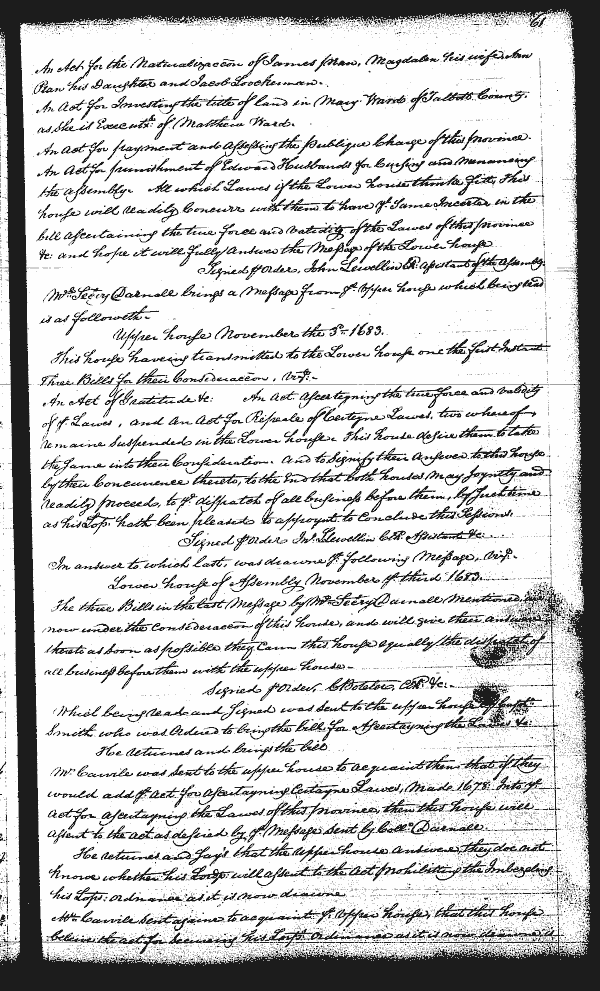 61
An Act for the Naturalizacõn of James Pean, Magdalen his wife Ann
Pean his Daughter and Jacob Loockerman.
An Act for Investing the title of land in Mary Ward of Talbott County.
as She is Execut.x of Matthew Ward.
An Act for payment and Assessing the Publique Charge of this Province.
An Act for punishment of Edward Husbands for Cursing and menaceing
the Assembly. All which Lawes if the Lower house thinke fitt, This
house will readily Concurr with them to have ye Same Inserted in the
bill Ascertaining the true force and validity of the Lawes of this province
&c: and hope it will fully Answer the Message of the Lower house
Signed p Order, John Llewellin Clk Assistant of the Assembly
Mr. Secry Darnall brings a Message from ye upper house which being read
is as followeth.
Upper house November the 3d 1683.
This house haveing transmitted to the Lower house one the first Instant
Three Bills for their Consideracõn, vizt.
An Act of Gratitude &c: An Act Ascertayning the true force and validity
of ye Lawes, and An Act for Repeale of Certayne Lawes, two whereof
remaine suspended in the Lower house. This house desire them to take
the Same into their Consideration. And to Signify their Answer to this house
by their Concurrence thereto, to the End that both houses may Joyntly and
readily proceed, to ye dispatch of all business before them, by Such time
as his Lop. hath been pleased to appoynt to Conclude this Sessions.
Signed p Order Jno. Llewellin Clk Assistant &c.
In answer to which last, was drawne ye following Message, vizt.
Lower house of Assembly November ye third 1683.
The three Bills in the last Message by Mr. Secry Darnall Mentioned, are
now under the Consideracõn of this house, and will give their answer
thereto as soon as possible they Cann this house equally the dispatch of
all business before them with the upper house.
Signed p Order, C Boteler, Clk. &c.
Which being read and Signed was sent to the upper house by Capt.
Smith who was Desired to bring the bill for Ascertayning the Lawes &c.
He returnes and brings the bill
Mr. Carvile was sent to the upper house to acquaint them that if they
would add ye Act for Ascertayning Certayne Lawes, Made 1678. Into ye
Act for Ascertayning the Lawes of this province, then this house will
assent to the act as desired by ye Message sent by Coll.o Darnall.
He returnes and Say's that the upper house Answer, they doe not
know whether his Lordp will assent to the Act prohibiting the Imbezling
his Lops: ordnance as it is now drawne
Mr. Carvile Sent againe to acquaint ye upper house, that this house
believe the act for secureing his Lorps. Ordinance as it is now drawne is